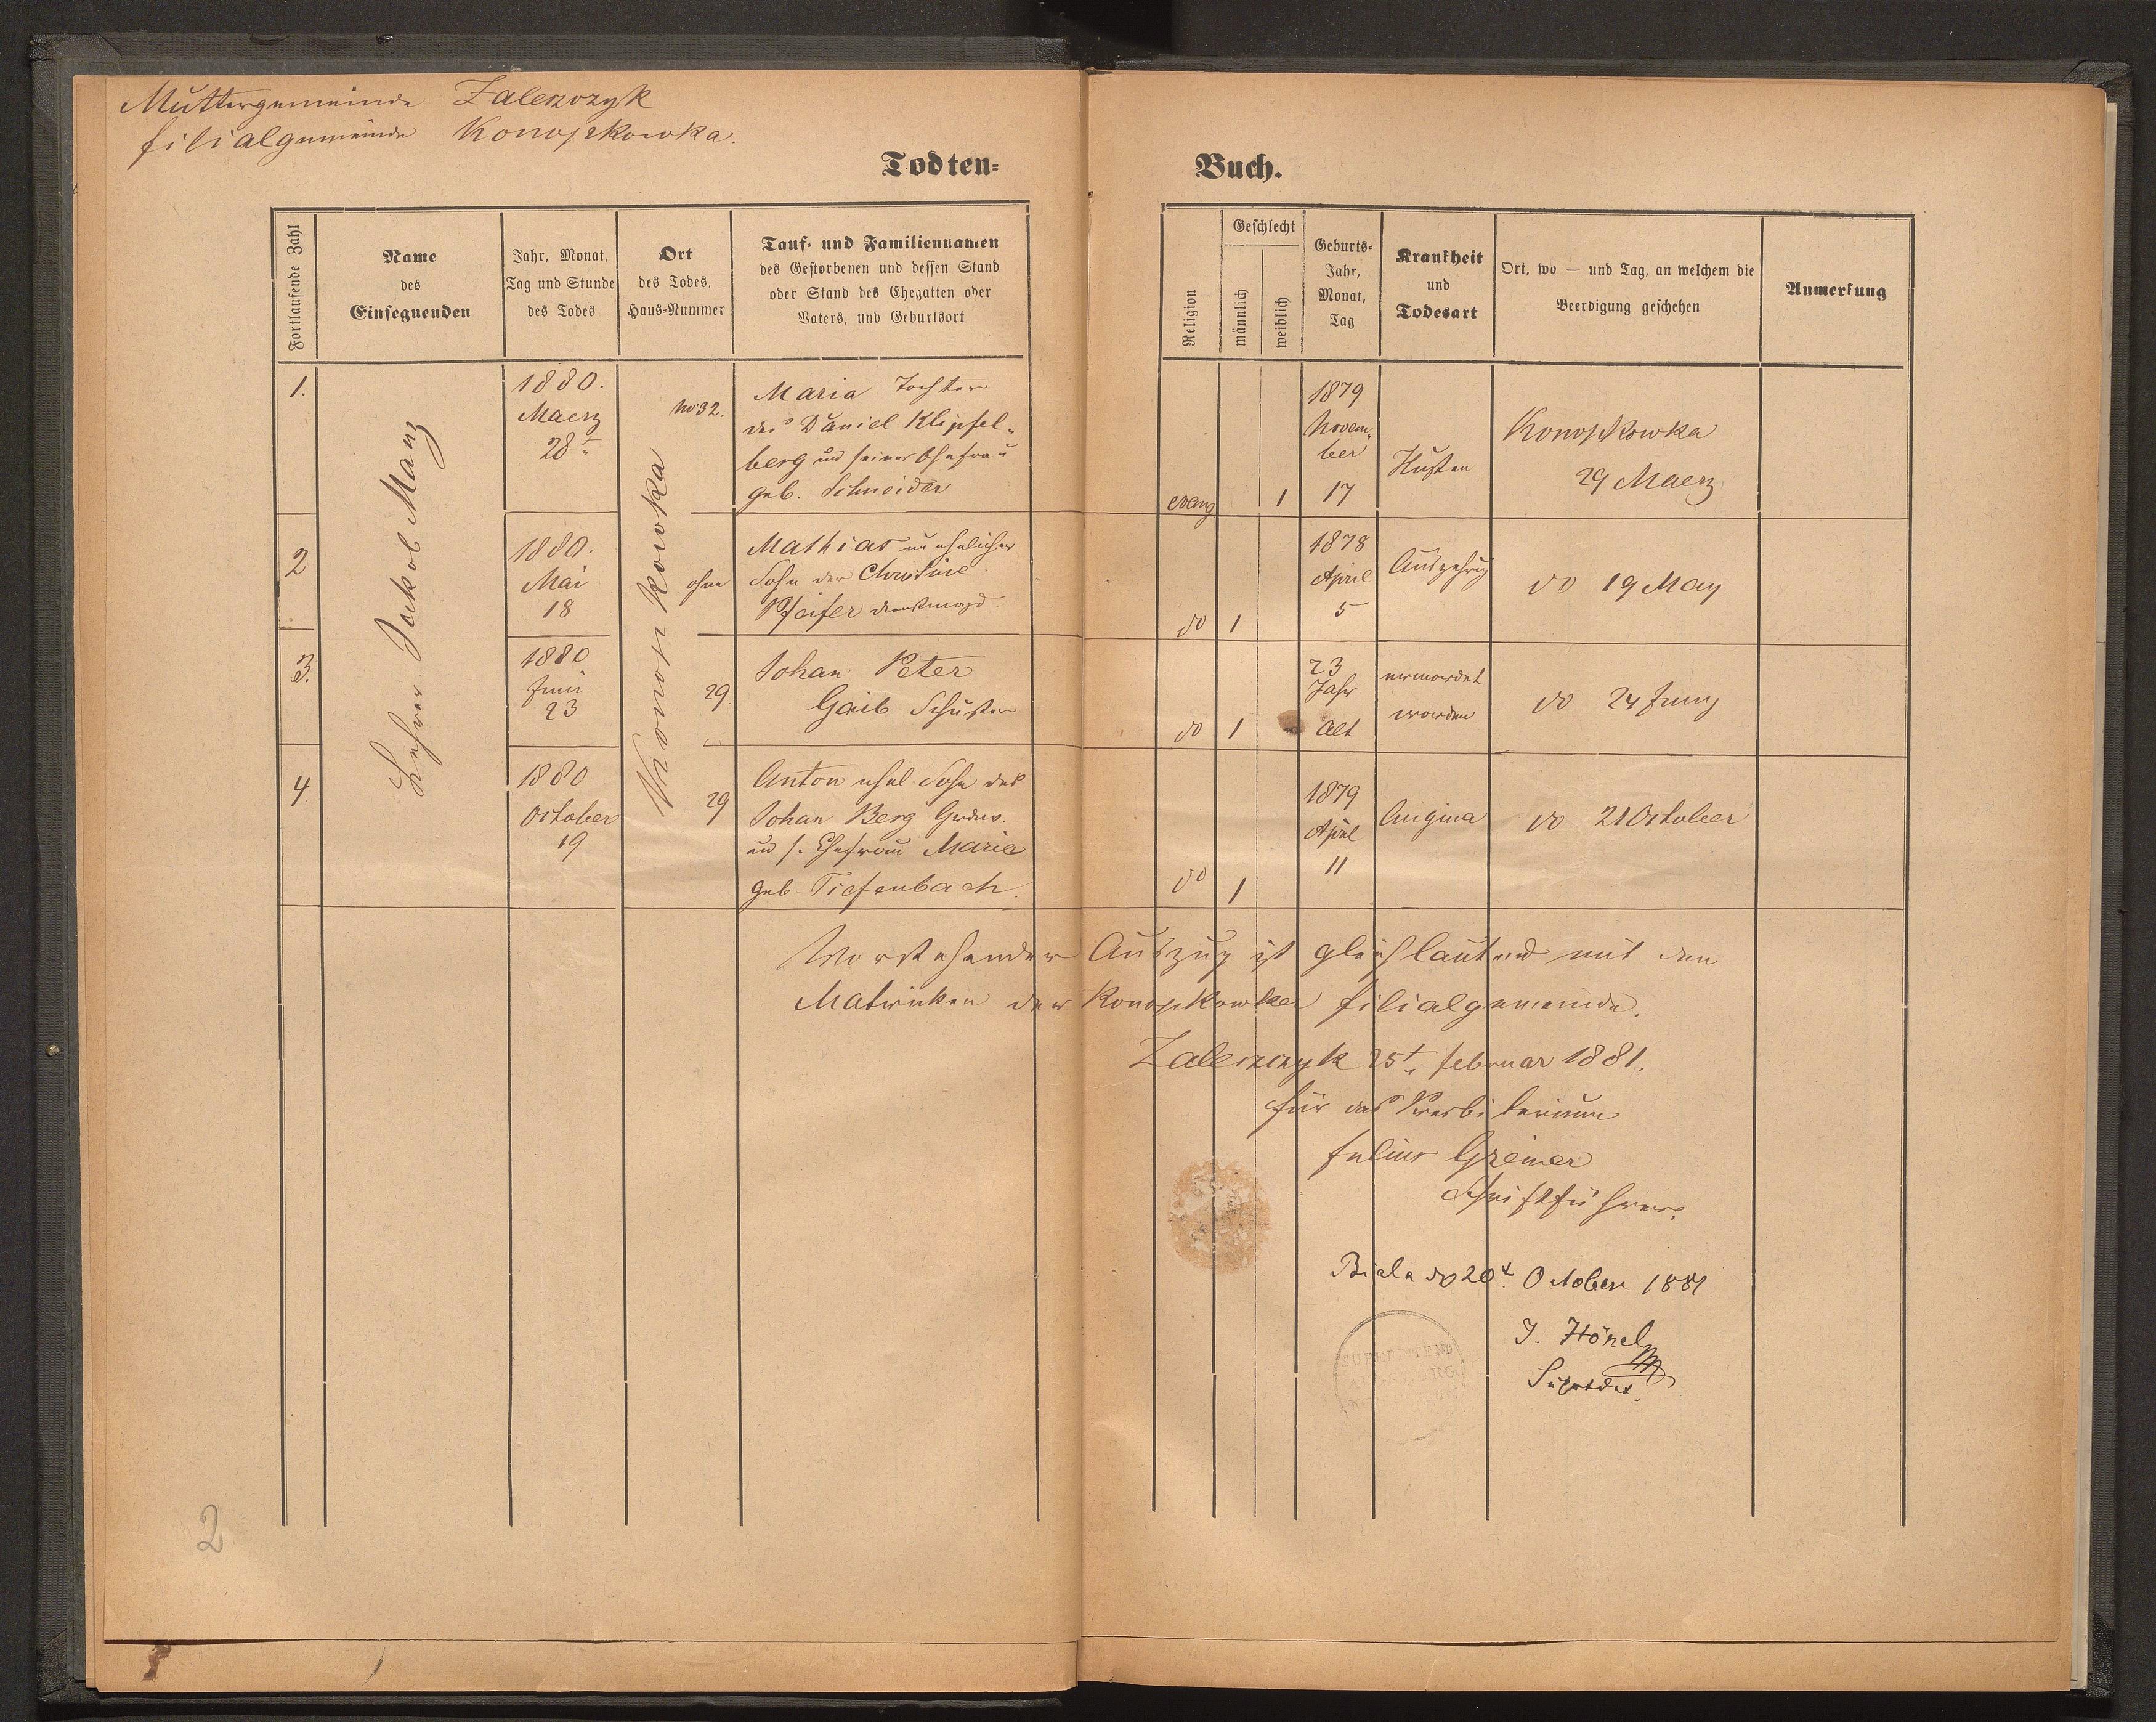 Muttergemeinde Zaleszczyk
filialgemeinde Konopkowka.
Todten-Buch.
Fortlaufende Zahl
Name
des
Einsegnenden
Jahr, Monat,
Tag und Stunde
des Todes
Ort
des Todes,
Haus-Nummer
Tauf- und Familiennamen
des Gestorbenen und dessen Stand
oder Stand des Ehegatten oder
Vaters, und Geburtsort
Religion
Geschlecht
männlich
weiblich
Geburts-
Jahr,
Monat,
Tag
Krankheit
und
Todesart
Ort, wo — und Tag, an welchem die
Beerdigung geschehen
Anmerkung
Lehrer Jakob Manz
Konopkowka
1.
1880.
Maerz
28t
No 32.
Maria Tochter
des Daniel Klipfel-
berg und seiner Ehefrau
geb. Schneider
evang
1
1879
Novem-
ber
17
Husten
Konopkowka
29 Maerz
2
1880.
Mai
18
ohne
Mathias unehelicher
Sohn der Christine
Pfeifer dienstmagd
do
1
1878
April
5
Auszehrung
do 19 May
3.
1880
Juni
23
29
Johan Peter
Gaib Schuster
do
1
23
Jahr
alt
ermordet
worden
do 24 Juny
4
1880
October
19
29
Anton ehel. Sohn des
Johan Berg
und s. Ehefrau Maria
geb. Tiefenbach
do
1
1879
April
11
Angina
do 21 October
Vorstehender Auszug ist gleichlautend mit den
Matriken der Konopkowker filialgemeinde.
Zaleszczyk 25t. februar 1881.
für das Presbiterium
Julius Greiner
Schriftführer.
Biala do 20t. October 1881
J. Hönel
Suptdt.
2